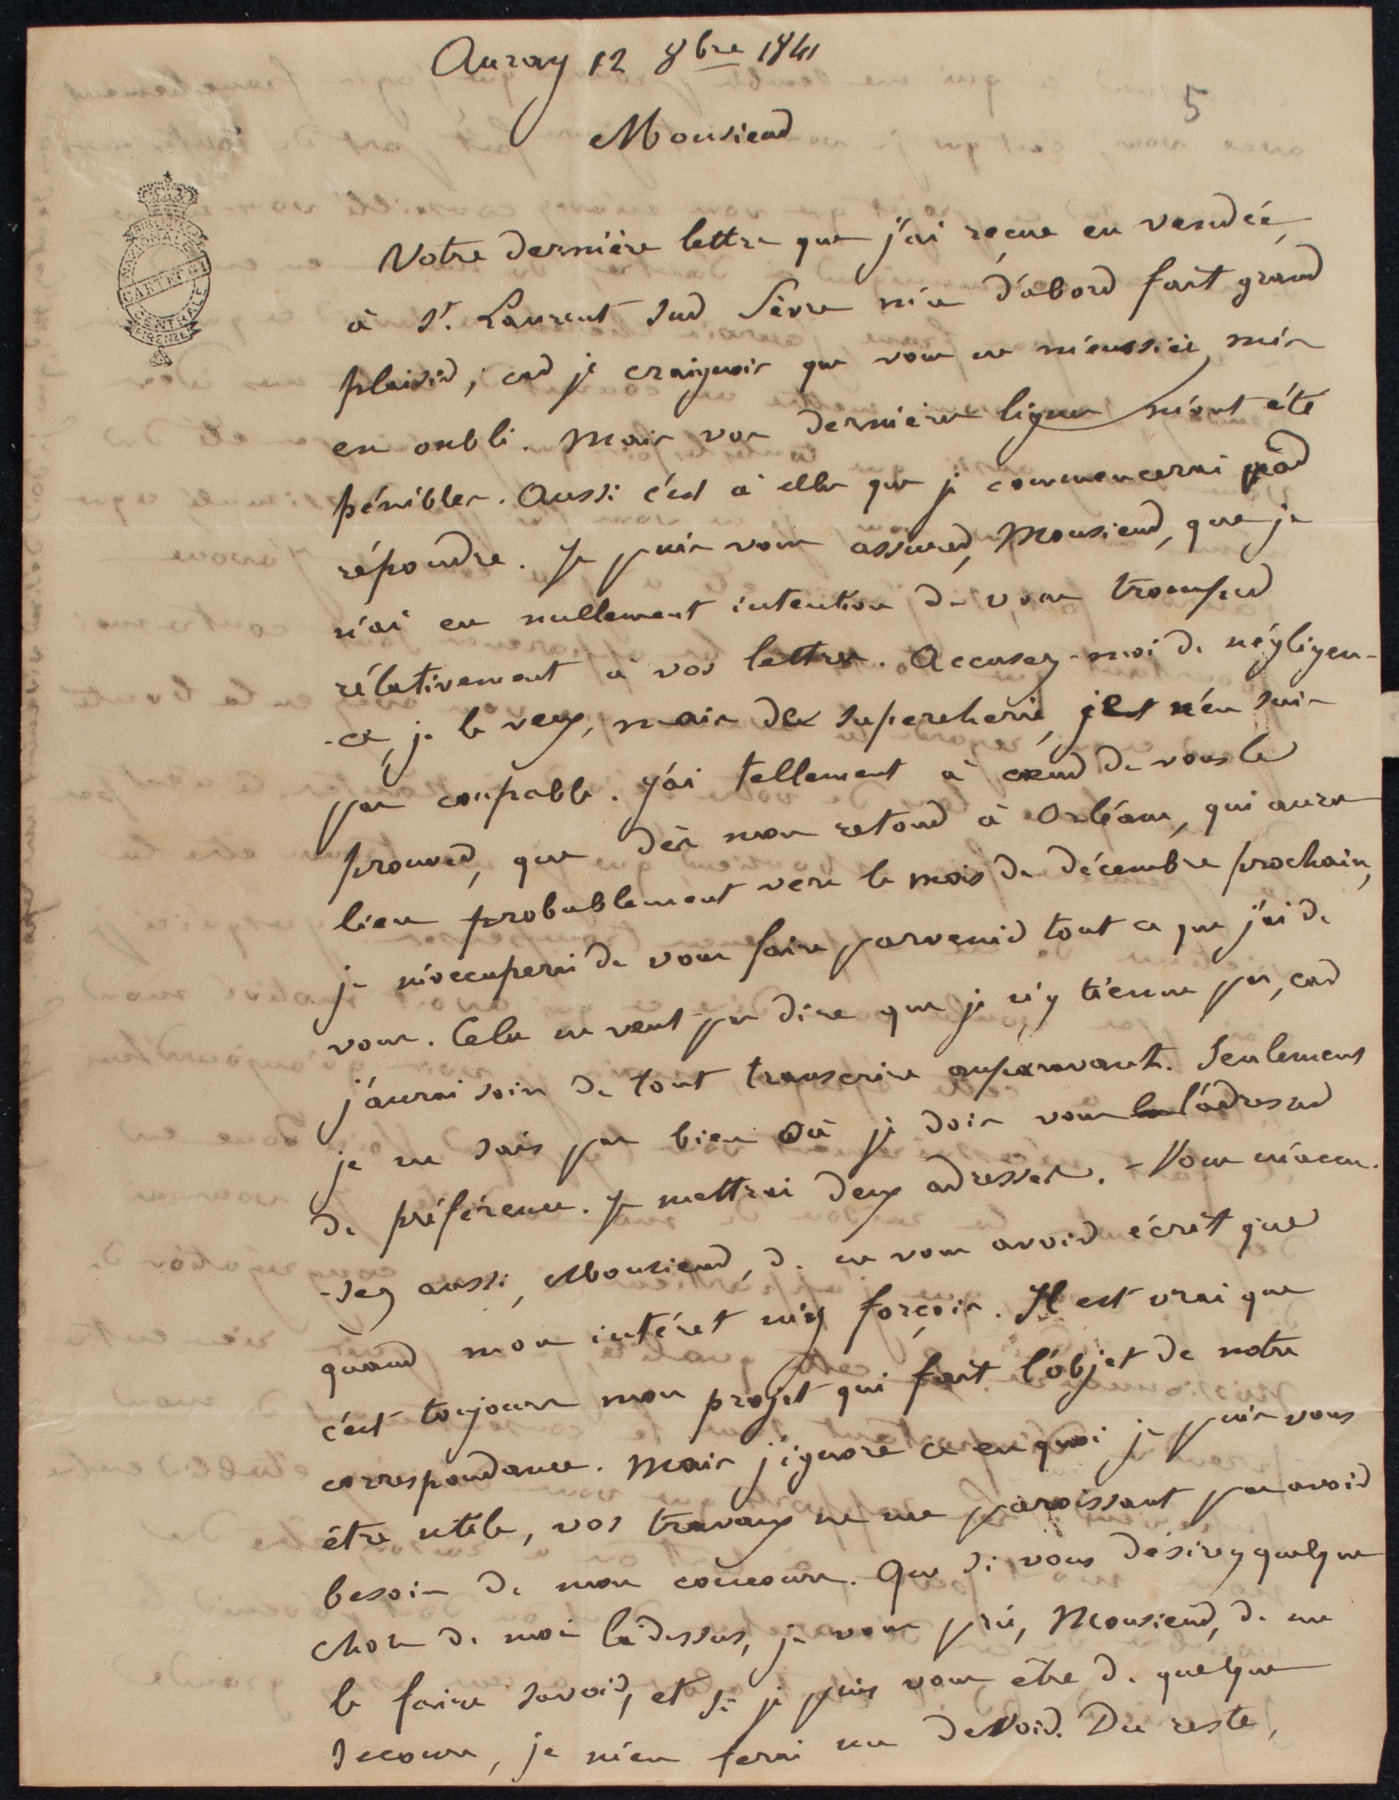 Auray 12 8bre 1841
5
Monsieur
Votre dernière lettre que j'ai reçue en vendée,
à St. Laurent sur Sèvre m'a d'abord fait grand
plaisir, car je craignois que vous ne m'eussiez mis
en oubli. Mais vos dernières lignes m'ont été
pénibles. Aussi c'est à elles que je commencerai par
répondre. Je puis vous assurer, Monsieur, que je
n'ai eu nullement intention de vous tromper
rélativement à vos lettres. Accusez-moi de négligen-
-ce, je le veux, mais de supercherie, je n'en suis
pas coupable. J'ai tellement à cœur de vous le
prouver, que dès mon retour à Orléans, qui aura
lieu probablement vers le mois de décembre prochain,
je m'occuperai de vous faire parvenir tout ce que j'ai de
vous. Cela ne veut pas dire que je n'y tienne pas, car
j'aurai soin de tout transcrire auparavant. Seulement
je ne sais pas bien où je dois vous l'adresser
de préférence. Je mettrai deux adresses. - Vous m'accu-
-sez aussi, Monsieur, de ne vous avoir écrit que
quand mon intéret m'y forçois. Il est vrai que
c'est toujours mon projet qui fait l'objet de notre
correspondance. Mais j'ignore ce en quoi je puis vous
être utile, vos travaux ne me paroissant pas avoir
besoin de mon concours. Que si vous désirez quelque
chose de moi là dessus, je vous prie, Monsieur, de me
le faire savoir, et si je puis vous être de quelque
secours, je m'en ferai un devoir. Du reste,
BIBLIOTECA NAZIONALE
CARTEGGI
CENTRALE
FIRENZE